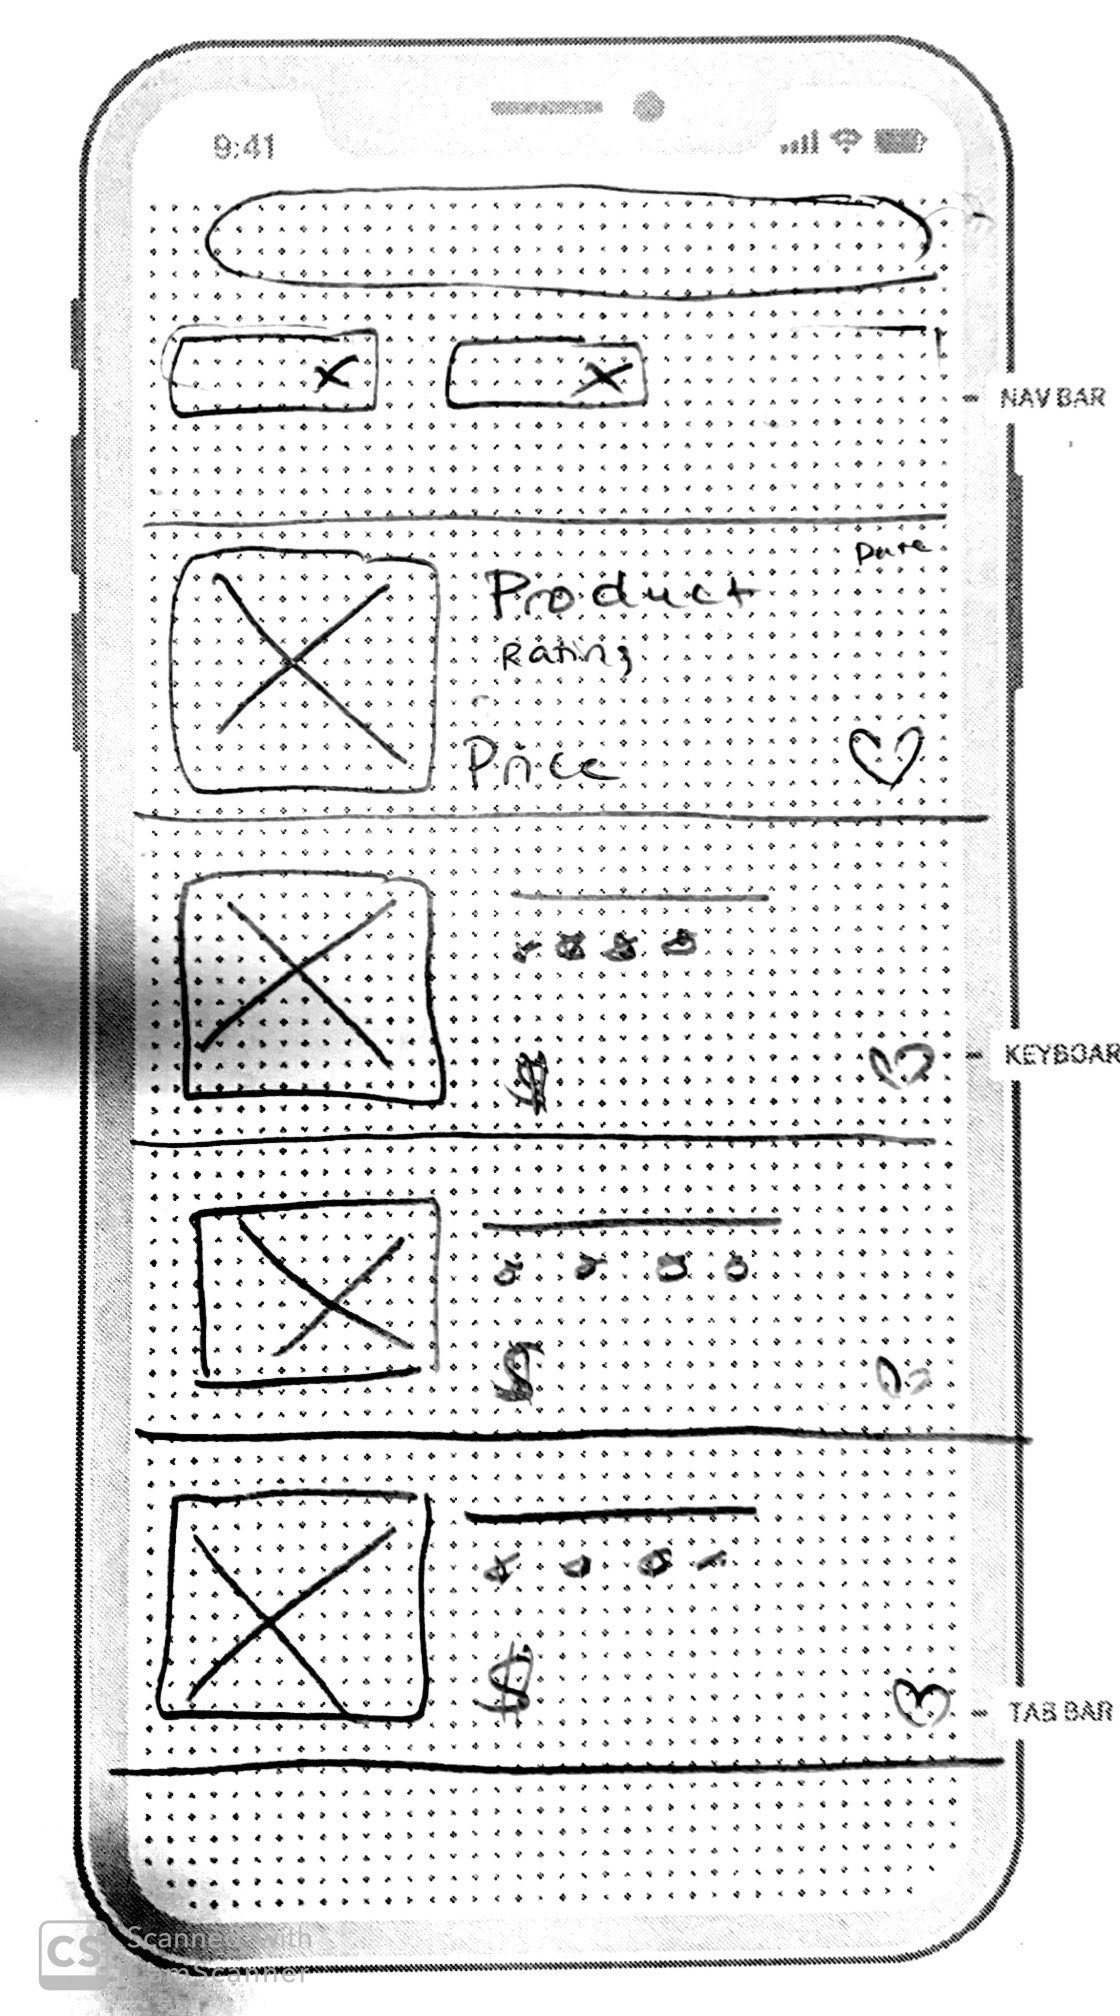 9:41
NAV BAR
Date
Product
Rating
Price
$
KEYBOAR
$
$
TAB BAR
CS
Scanned with
CamScanner